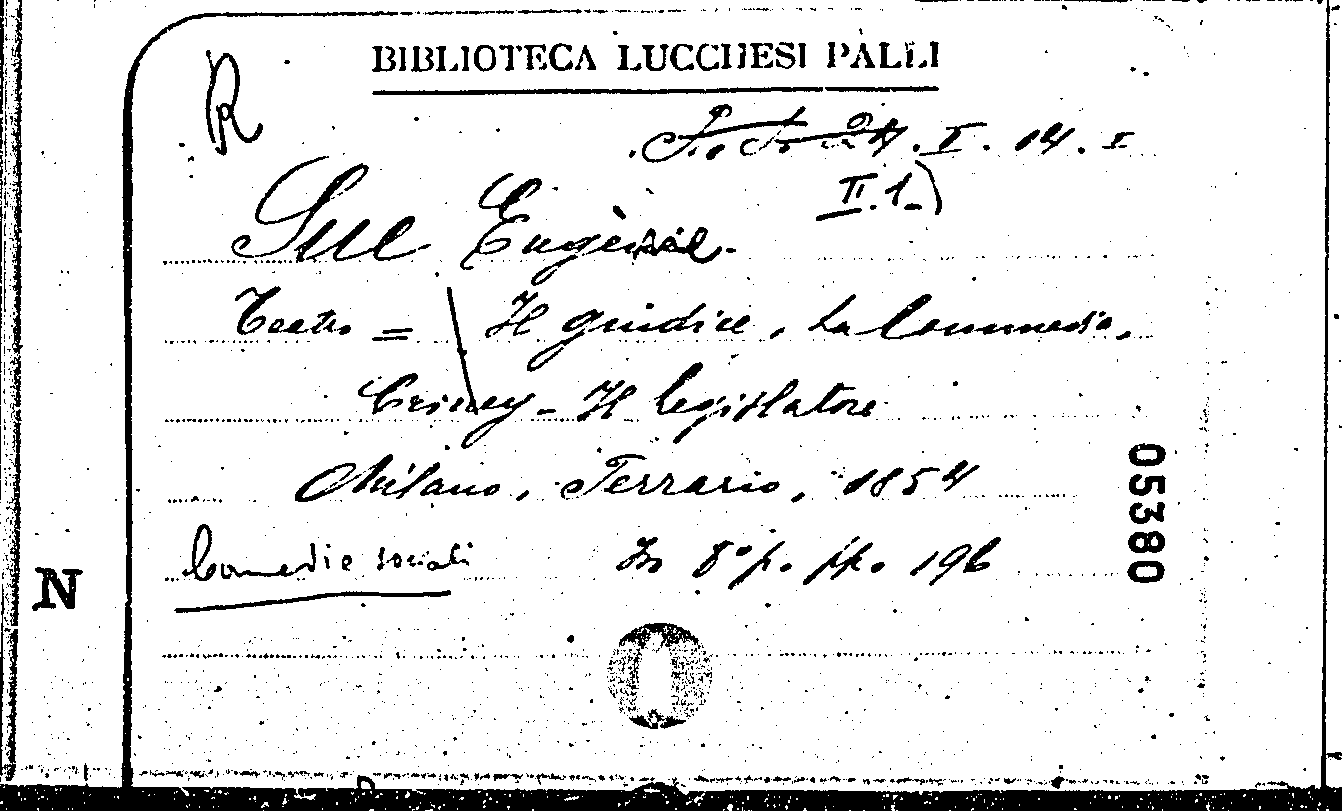 BIBLIOTECA LUCCHESI PALLI
R
24. I. 14. I
II.1-)
Sue Eugène.
Teatro = Il giudice, La Commedia,
Criney - Il legislatore
Milano, Ferrario, 1854
Comedie sociali In 8° p. pp. 196
05380
N